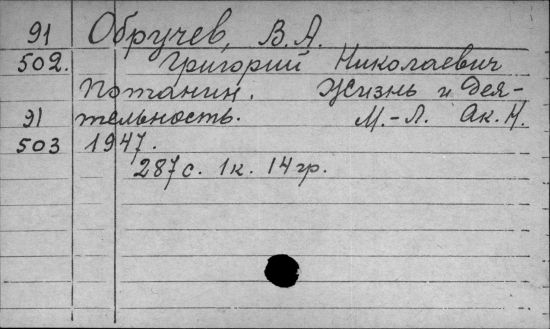 91 Обручев, В.А.
502. Григорий Николаевич
Потанин. Жизнь и Дея-
91 тельность. М.-Л. Ак.Н.
503 1947.
287с. 1к. 14гр.